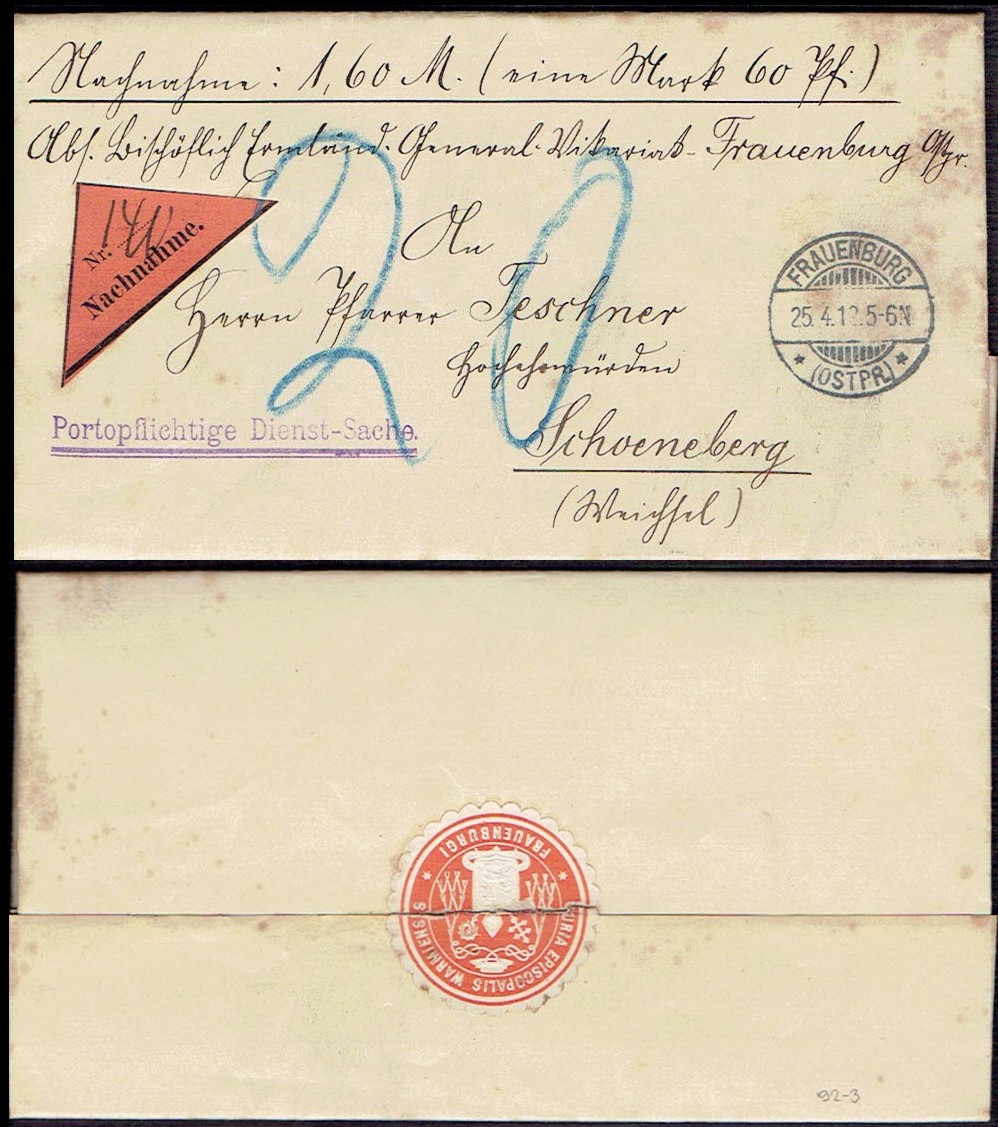 Nachnahme: 1,60 M. (eine Mark 60 Pf.)
Abs. Bischöflich Ermländ. General-Vikariat Frauenburg O/pr.
Nr. 140
Nachnahme.
20
An
Herrn Pfarrer Teschner
Hochehrwürden
Schoeneberg
(Weichsel)
Portopflichtige Dienst-Sache.
FRAUENBURG
25.4.12.5-6N
* (OSTPR.) *
CURIA EPISCOPALIS WARMIENSIS
* FRAUENBURGI *
92-3